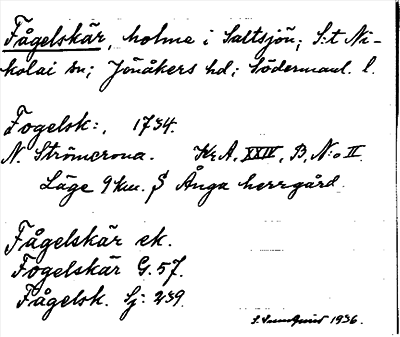 Fågelskär, holme i Saltsjön; S:t Ni-
kolai sn; Jönåkers hd; Södermanl. l.
Fogelsk:, 1734.
N. Strömcrona. KrA, XXIV, B, N:o II
Läge 9 km. S Ånga herrgård.
Fågelskär ek.
Fogelskär G. 57.
Fågelsk. Sj: 239.
1936.